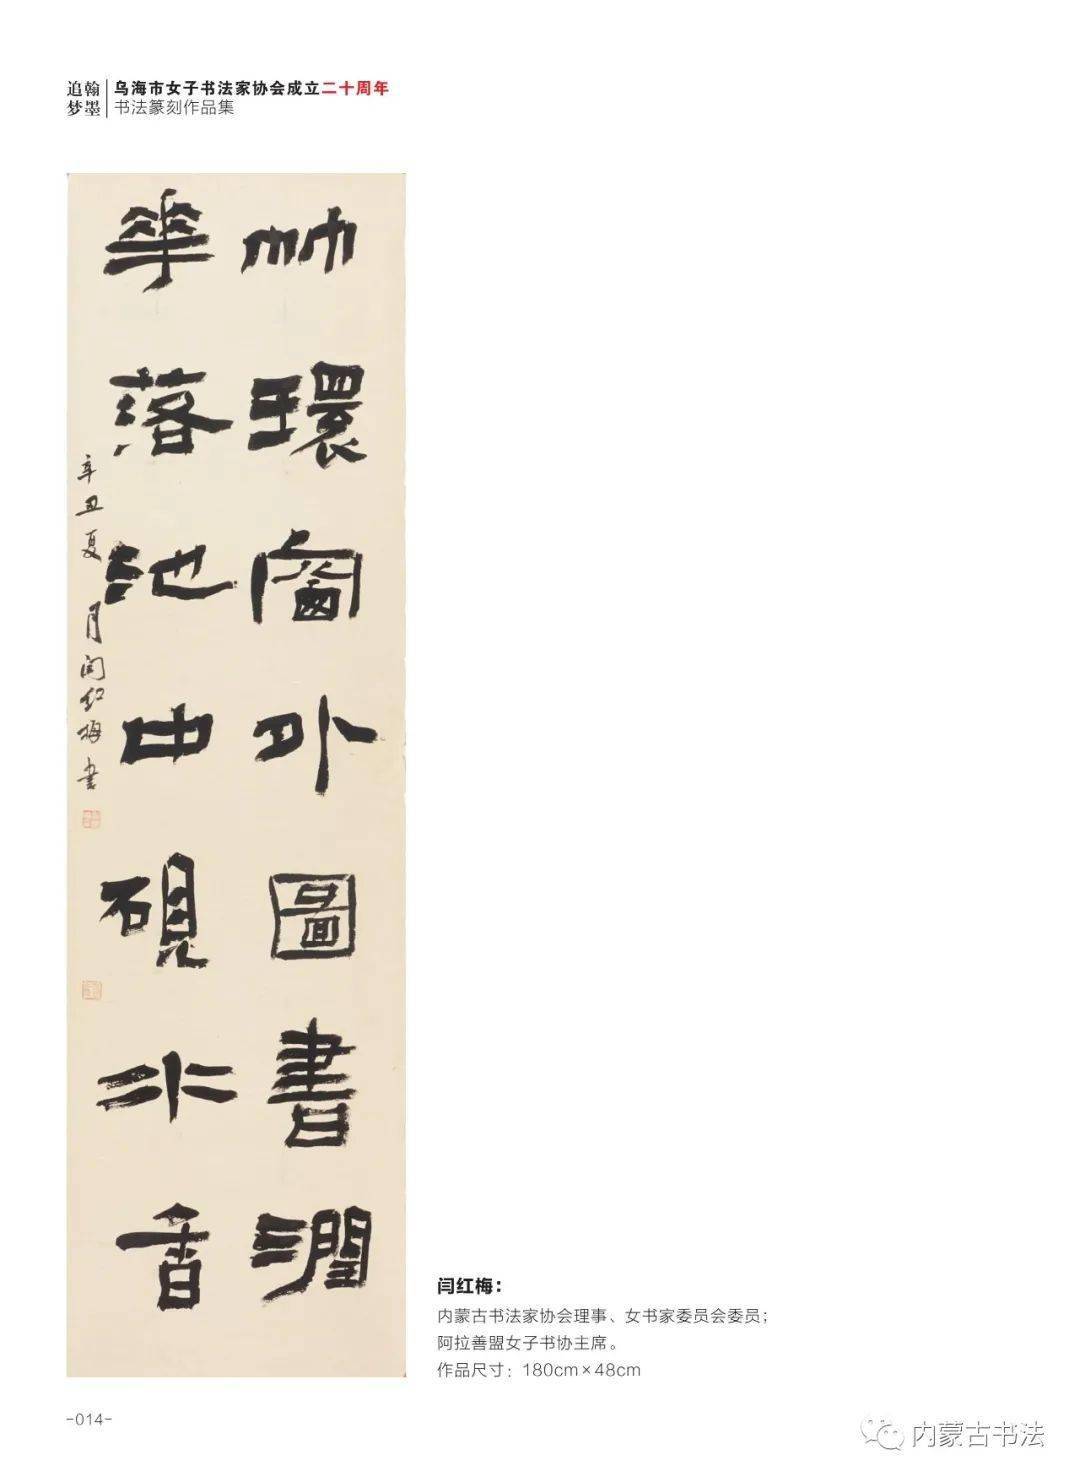 追翰
梦墨
乌海市女子书法家协会成立二十周年
书法篆刻作品集
竹環窗外圖書潤
華落池中硯水香
辛丑夏月闫红梅書
闫红梅：
内蒙古书法家协会理事、女书家委员会委员；
阿拉善盟女子书协主席。
作品尺寸：180cm×48cm
-014-
内蒙古书法